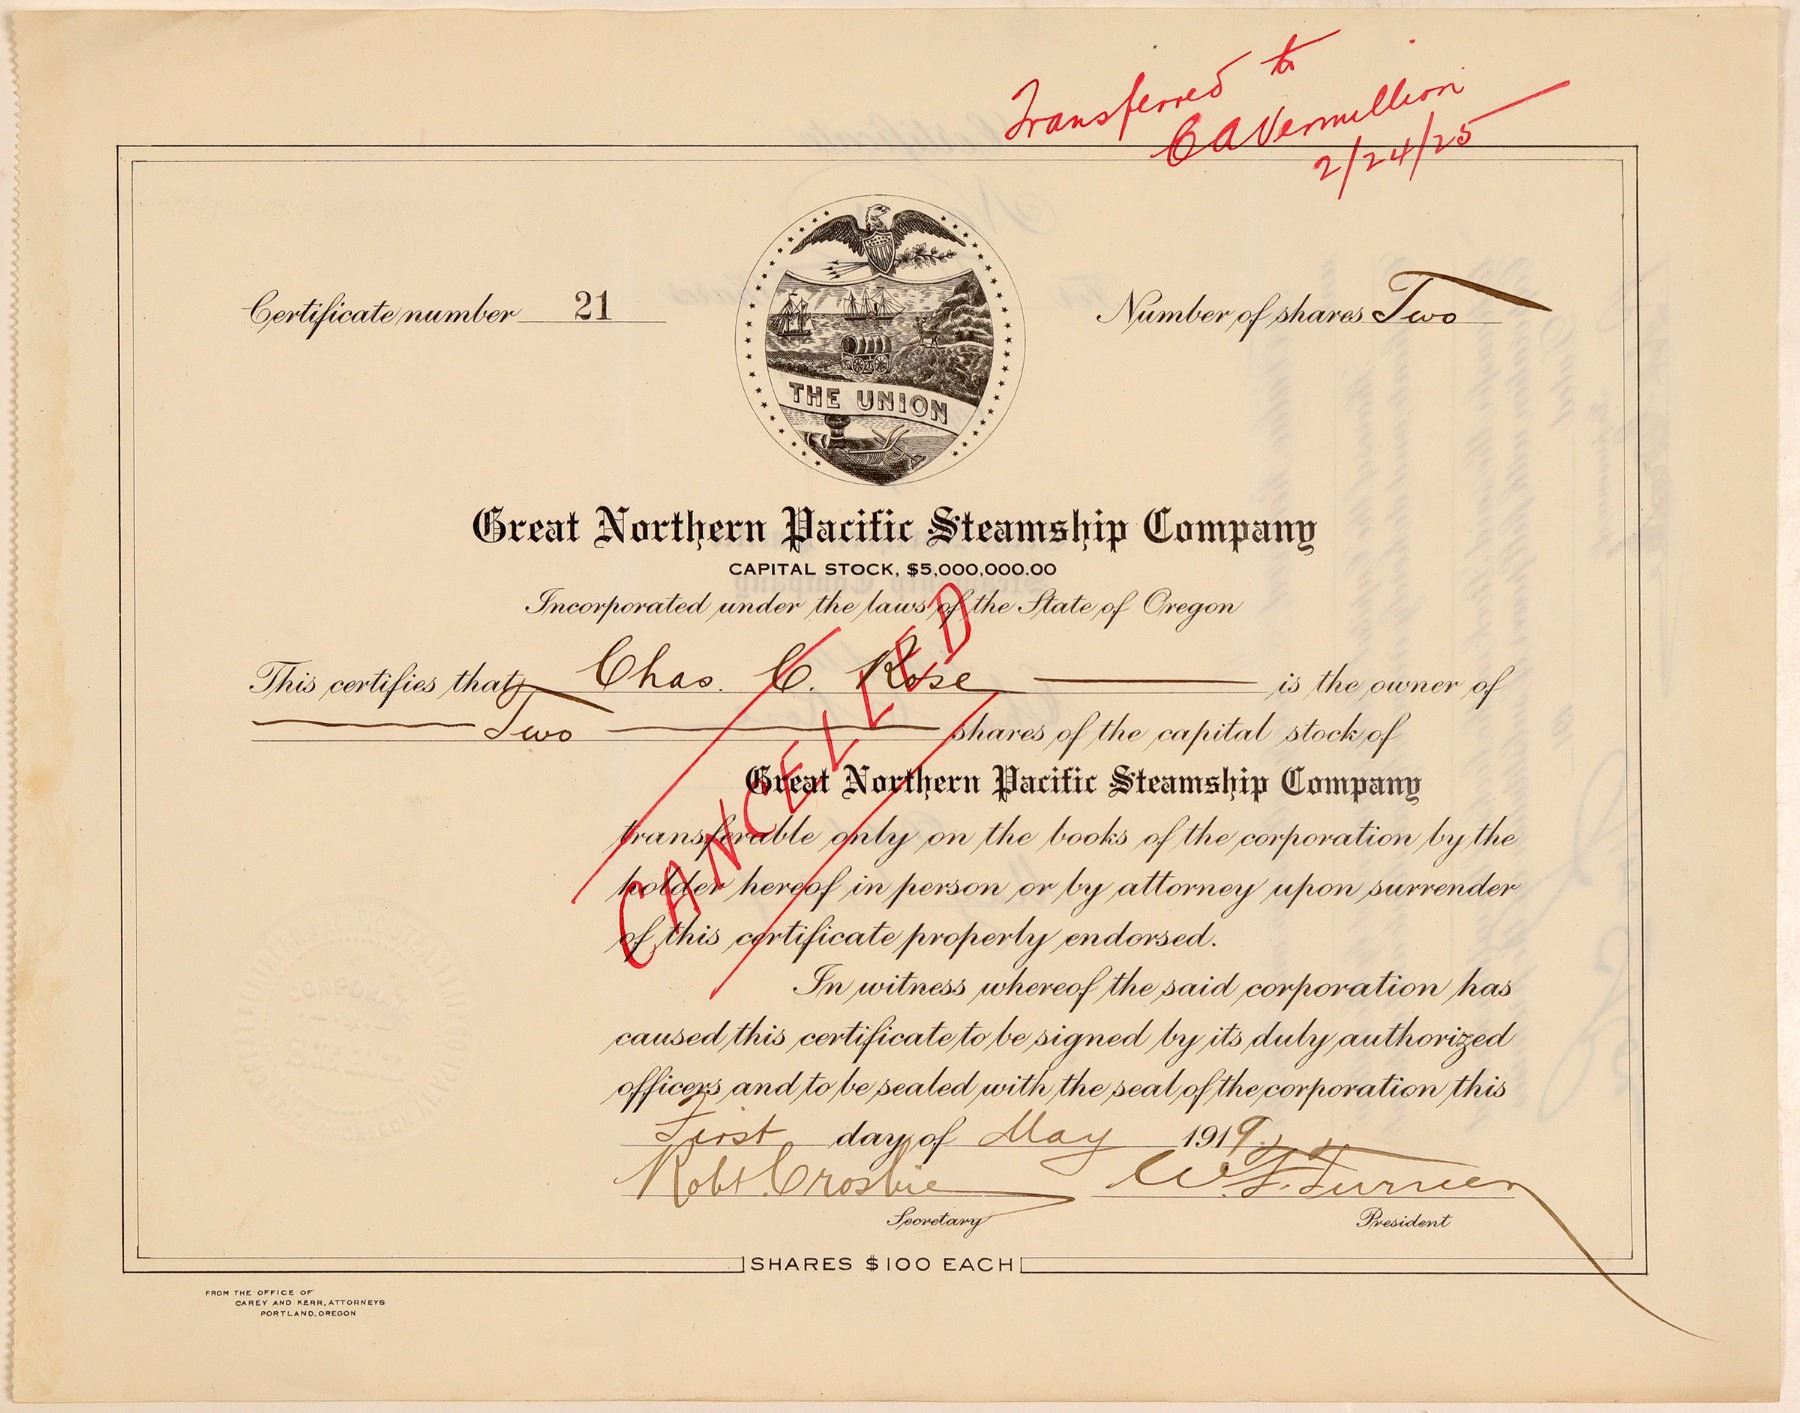 Transferred to
C A Vermillion
2/24/25
Certificate number 21
Number of shares Two
THE UNION
Great Northern Pacific Steamship Company
CAPITAL STOCK, $5,000,000.00
Incorporated under the laws of the State of Oregon
This certifies that Chas. C. Rose is the owner of
Two shares of the capital stock of
Great Northern Pacific Steamship Company
transferable only on the books of the corporation by the
holder hereof in person or by attorney upon surrender
of this certificate properly endorsed.
CANCELLED
In witness whereof the said corporation has
caused this certificate to be signed by its duly authorized
officers and to be sealed with the seal of the corporation this
First day of May 1919.
Robt. Crosbie W. F. Turner
Secretary President
SHARES $100 EACH
FROM THE OFFICE OF
CAREY AND KERR, ATTORNEYS
PORTLAND, OREGON